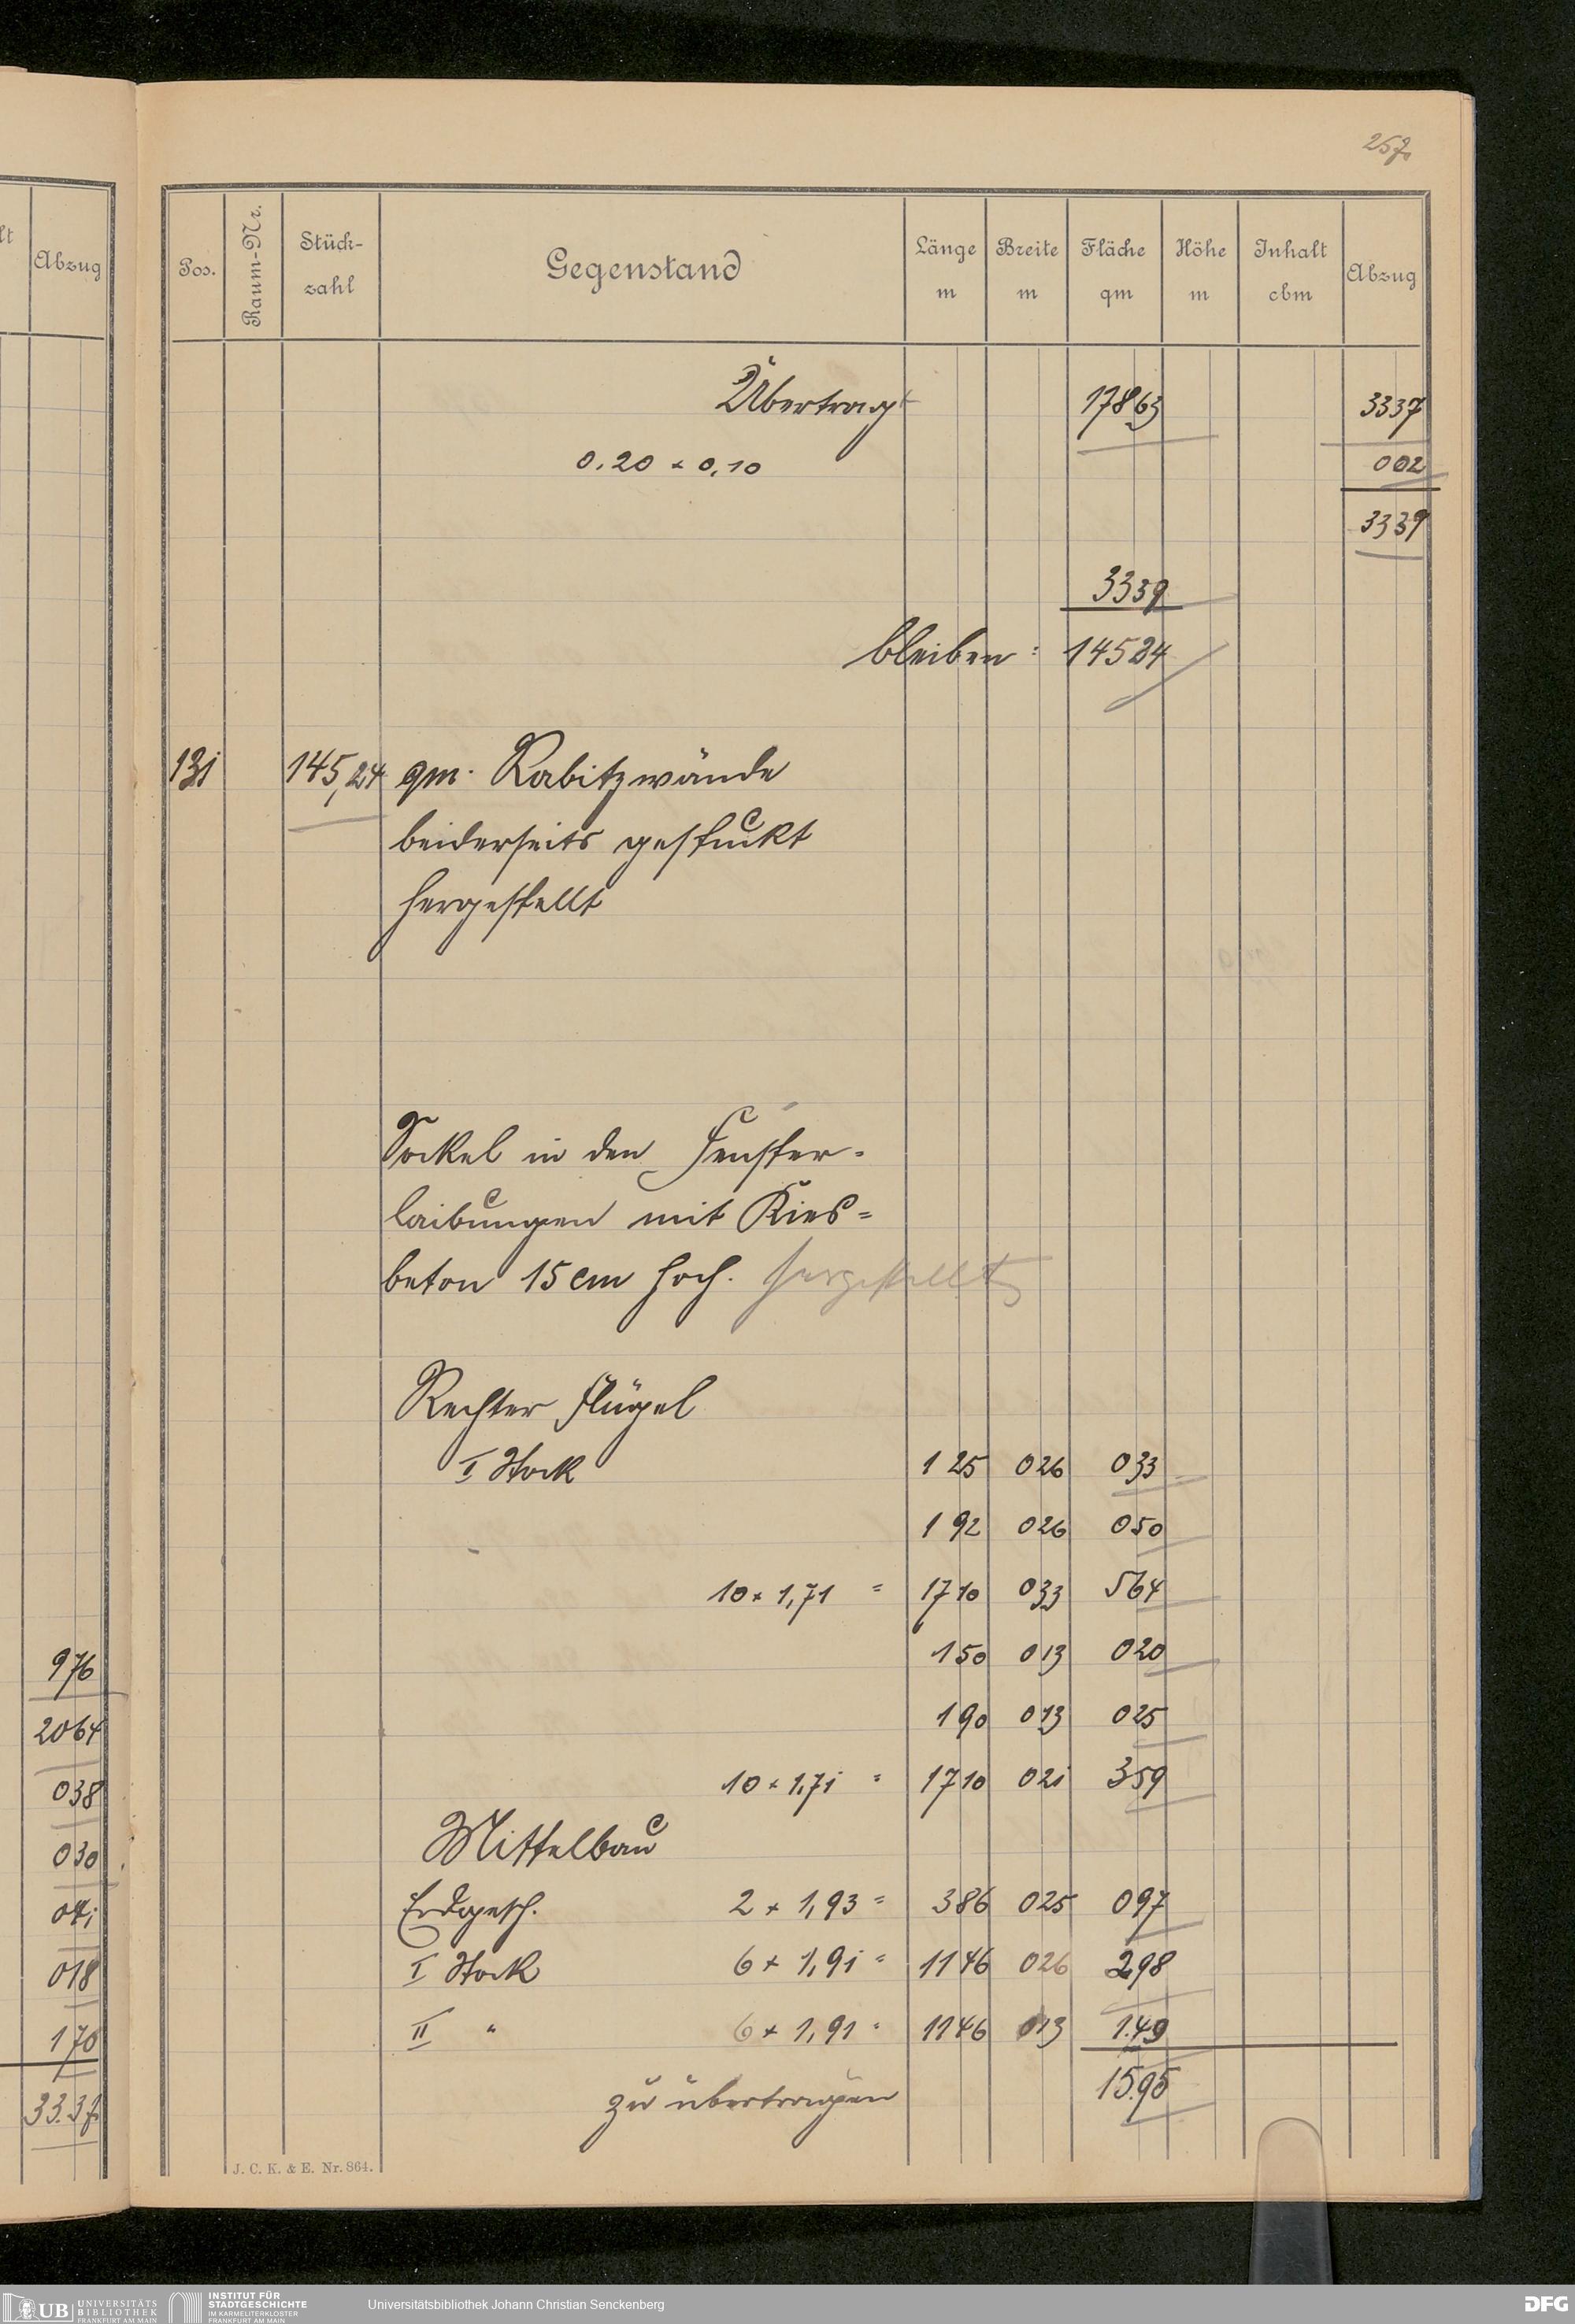 257.
lt
Abzug
976
2064
038
030
041
018
170
33.37
Pos.
Raum-Nr.
Stück-
zahl
Gegenstand
Länge
m
Breite
m
Fläche
qm
Höhe
m
Inhalt
cbm
Abzug
Übertrag 178 63 33 37
0.20 × 0,10 0 02
33 39
33 39
bleiben: 145 24
131 145,24 qm. Rabitzwände
beiderseits gestuckt
hergestellt
Sockel in den Fenster-
laibungen mit Kies=
beton 15 cm hoch. hergestellt
Rechter Flügel
I Stock 1 25 0 26 0 33
1 92 0 26 0 50
10 × 1,71 = 17 10 0 33 5 64
1 50 0 13 0 20
1 90 0 13 0 25
10 × 1,71 = 17 10 0 21 3 59
Mittelbau
Erdgesch. 2 × 1,93 = 3 86 0 25 0 97
I Stock 6 × 1,91 = 11 46 0 26 2 98
II " 6 × 1,91 = 11 46 0 13 1.49
zu übertragen 15.95
J. C. K. & E. Nr. 864.
UB UNIVERSITÄTS
BIBLIOTHEK
FRANKFURT AM MAIN
INSTITUT FÜR
STADTGESCHICHTE
IM KARMELITERKLOSTER
FRANKFURT AM MAIN
Universitätsbibliothek Johann Christian Senckenberg
DFG